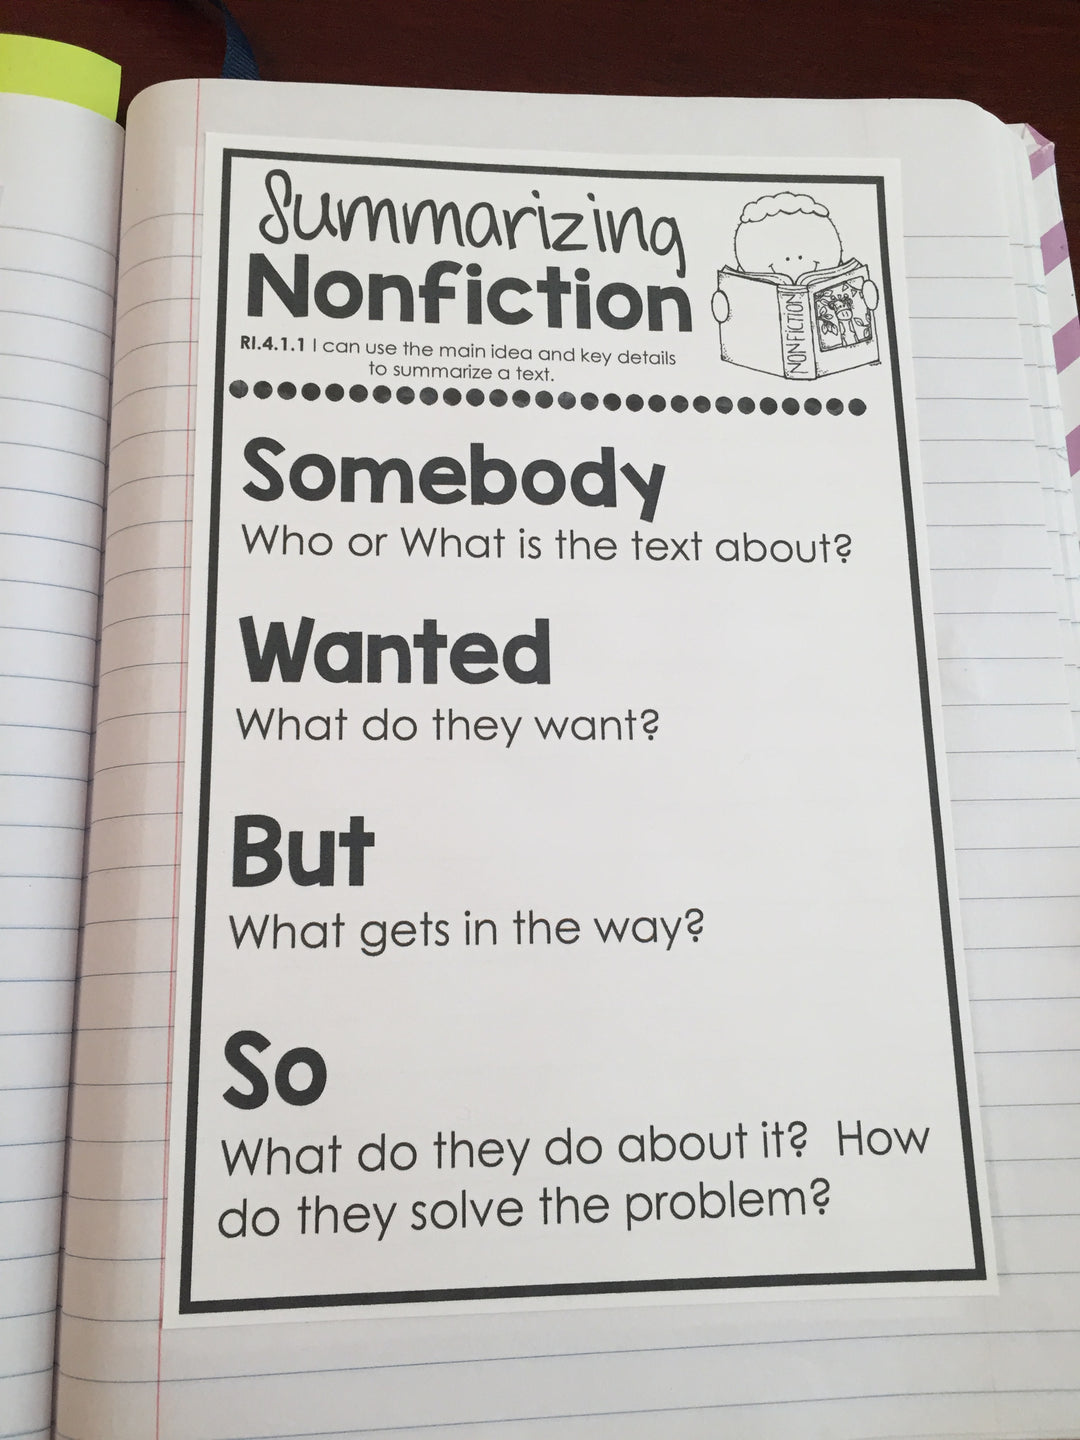 Summarizing
Nonfiction
RI.4.1.1 I can use the main idea and key details
to summarize a text.
NONFICTION
Somebody
Who or What is the text about?
Wanted
What do they want?
But
What gets in the way?
So
What do they do about it?  How
do they solve the problem?